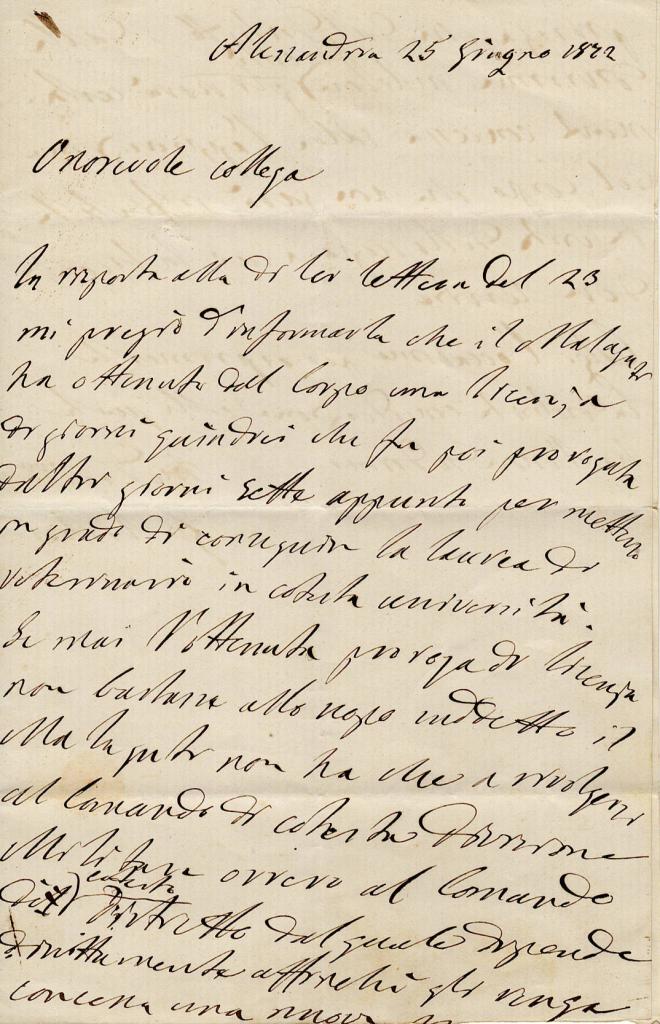 Alessandria 25 Giugno 1872
Onorevole collega
In risposta alla di lei lettera del 23
mi pregio d'informarla che il Malaguti
ha ottenuto dal Corpo una licenza
di giorni quindici che fu poi prorogata
d'altri giorni sette appunto per mettersi
in grado di conseguire la laurea di
veterinario in cotesta università.
Se mai l'ottenuta proroga di licenza
non bastasse allo scopo suddetto il
Malaguti non ha che a rivolgersi
al Comando di cotesta Divisione
Militare ovvero al Comando
di cotesto Distretto dal quale dipende
direttamente affinché gli venga
concessa una nuova